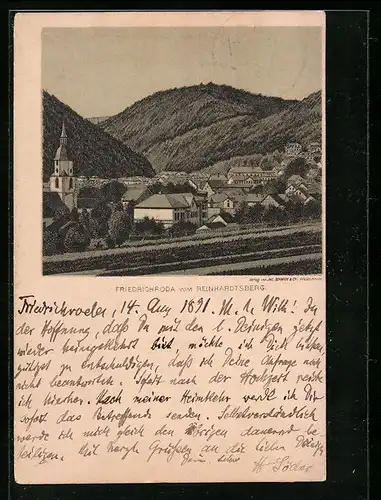 FRIEDRICHRODA VOM REINHARDTSBERG.
Friedrichroda, 14. Aug 1891. M. l. Willi! In
der Hoffnung, daß Du mit den l. Deinigen jetzt
wieder heimgekehrt bist möchte ich Dich bitten,
gütigst zu entschuldigen, daß ich Deine Anfrage noch
nicht beantwortet. Sofort nach der Hochzeit reiste
ich hierher. Nach meiner Heimkehr werde ich Dir
sofort das Betreffende senden. Selbstverständlich
werde ich mich gleich den übrigen dauernd be
teiligen. Mit herzl. Grüßen an die lieben Deinigen
Dein